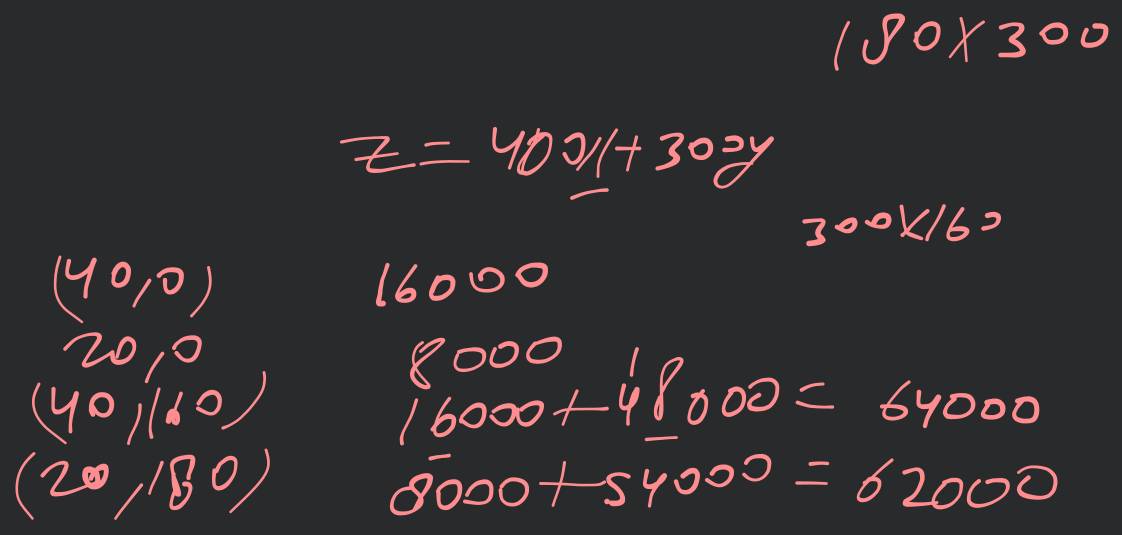 180X300
Z = 400x + 300y
300X160
(40,0) 16000
20,0 8000
(40,160) 16000+48000 = 64000
(20,180) 8000+54000 = 62000